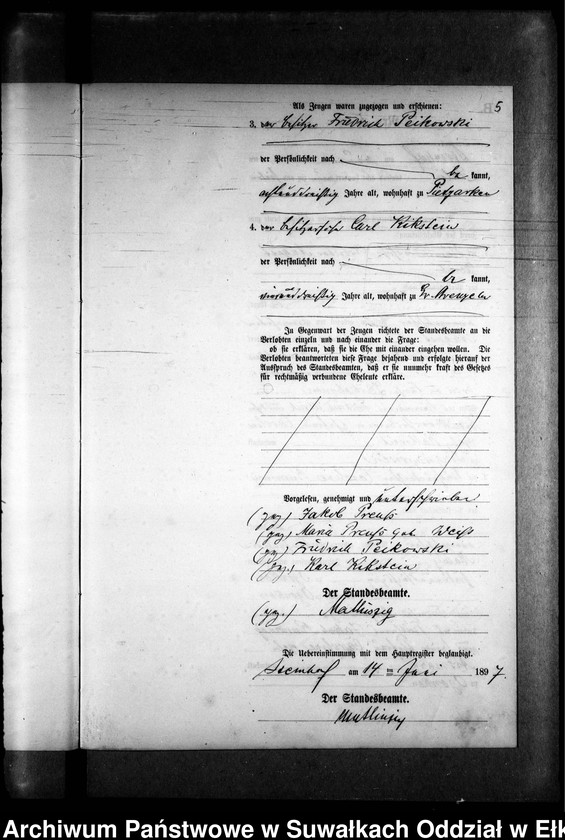 5
Als Zeugen waren zugezogen und erschienen:
3. der Besitzer Friedrich Peikowski
der Persönlichkeit nach
be kannt,
Jahre alt, wohnhaft zu
4. der Besitzersohn Carl Kikstein
der Persönlichkeit nach
be kannt,
vierunddreißig Jahre alt, wohnhaft zu Gr.
In Gegenwart der Zeugen richtete der Standesbeamte an die
Verlobten einzeln und nach einander die Frage:
ob sie erklären, daß sie die Ehe mit einander eingehen wollen. Die
Verlobten beantworteten diese Frage bejahend und erfolgte hierauf der
Ausspruch des Standesbeamten, daß er sie nunmehr kraft des Gesetzes
für rechtmäßig verbundene Eheleute erkläre.
Vorgelesen, genehmigt und unterschrieben
(gez) Jakob Preuß
(gez) Maria Preuß geb. Weiß
(gez) Friedrich Peikowski
(gez.) Karl Kikstein
Der Standesbeamte.
(gez.)
Die Uebereinstimmung mit dem Hauptregister beglaubigt.
am 14 ten Juni 1897.
Der Standesbeamte.
Archiwum Państwowe w Suwałkach Oddział w Ełk